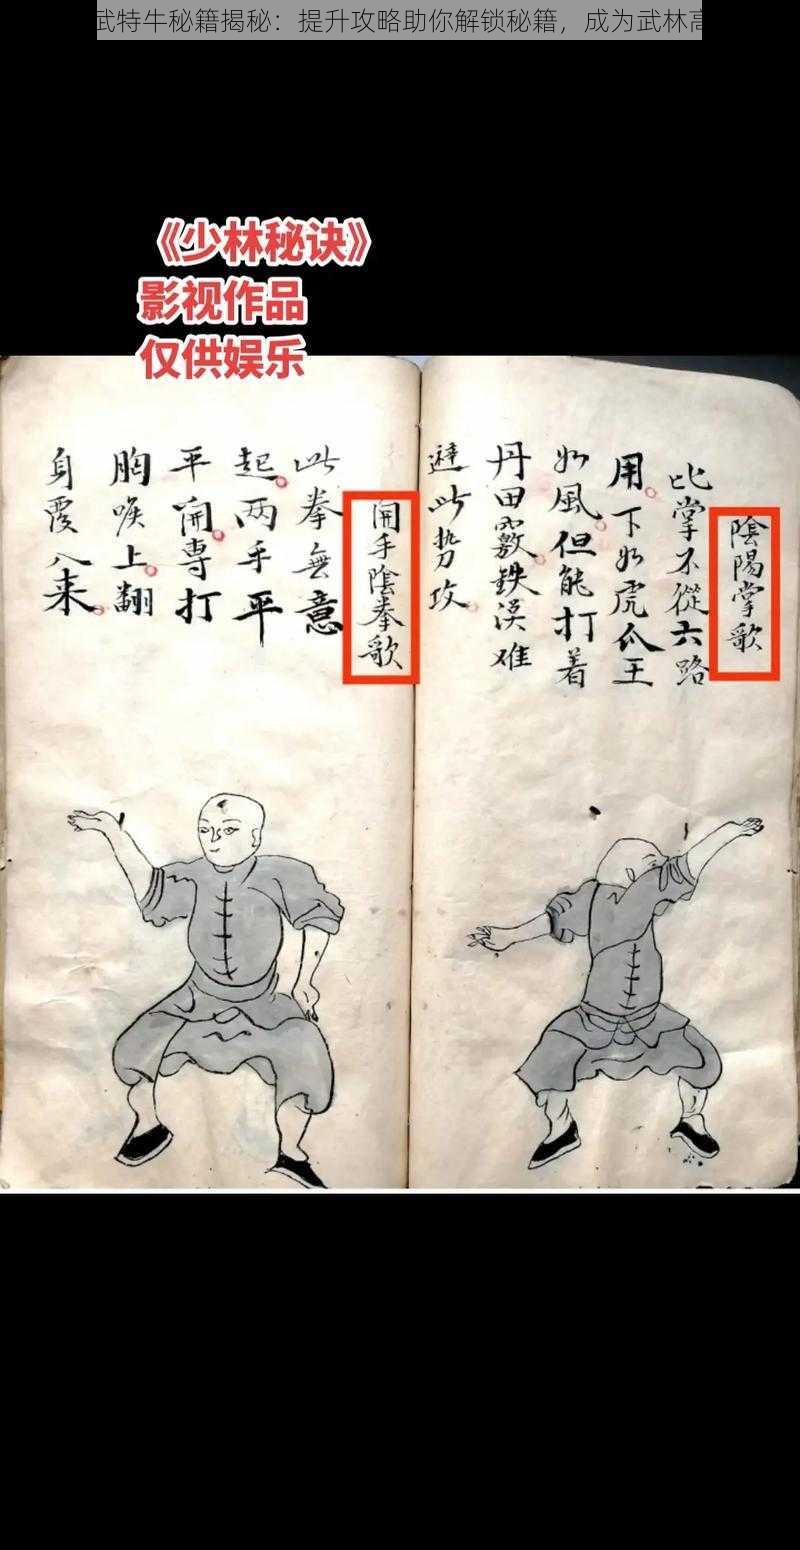 武特牛秘籍揭秘：提升攻略助你解锁秘籍，成为武林高
《少林秘诀》
影视作品
仅供娱乐
陰陽掌歌
比掌不從六路
用下如虎爪王
如風但能打着
丹田竅鉄漢难
避此势攻
開手陰拳歌
此拳無意
起两手平
平開專打
胸喉上翻
身覆入来